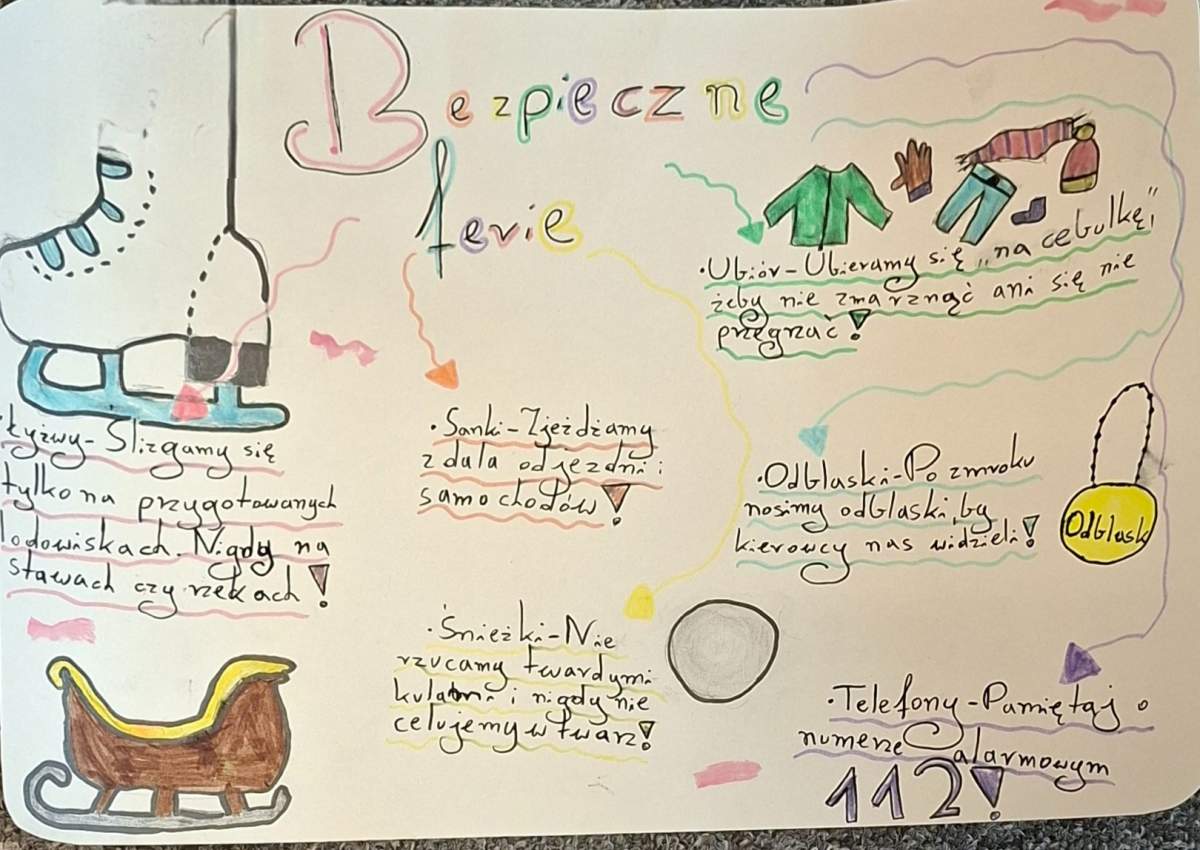 Bezpieczne
ferie
·Ubiór-Ubieramy się „na cebulkę",
żeby nie zmarznąć ani się nie
przegrzać!
·Łyżwy-Ślizgamy się
tylko na przygotowanych
lodowiskach. Nigdy na
stawach czy rzekach!
·Sanki-Zjeżdżamy
z dala od jezdni i
samochodów!
·Odblaski-Po zmroku
nosimy odblaski, by
kierowcy nas widzieli!
Odblask
·Śnieżki-Nie
rzucamy twardymi
kulami i nigdy nie
celujemy w twarz!
·Telefony-Pamiętaj o
numerze alarmowym
112!